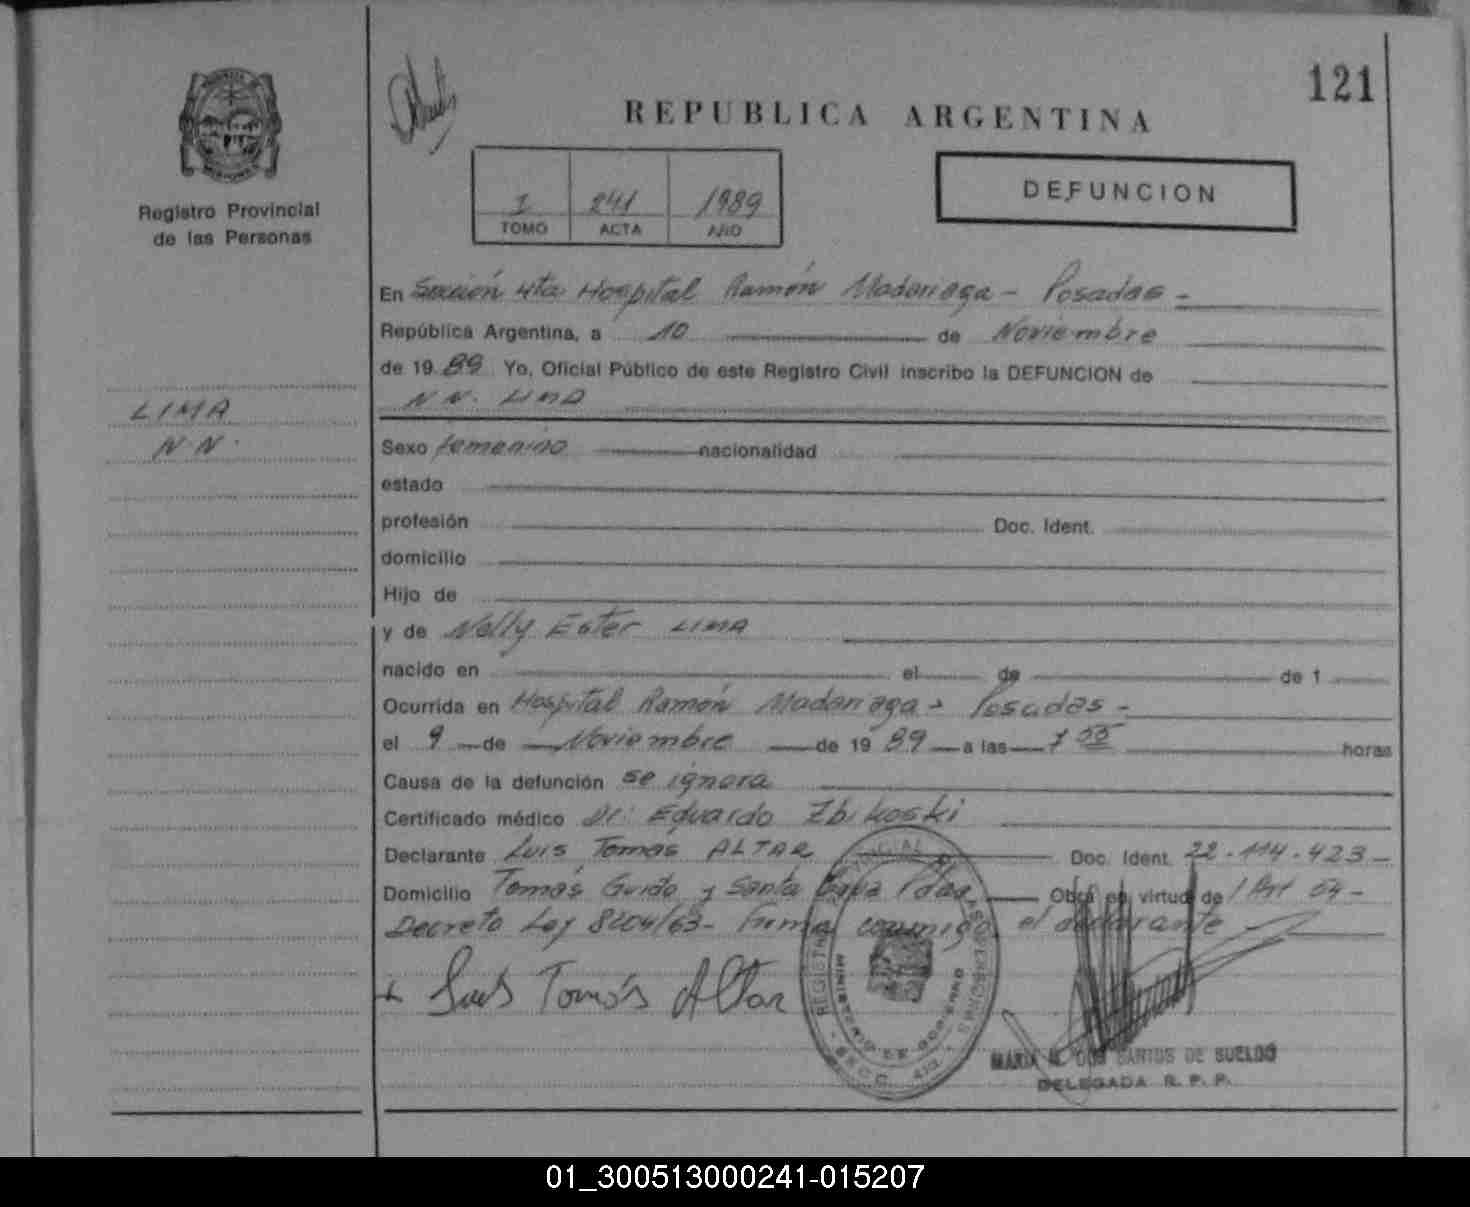 121
REPUBLICA ARGENTINA
DEFUNCION
1 241 1989
TOMO ACTA AÑO
Registro Provincial
de las Personas
LIMA
N.N.
En Sección 4ta Hospital Ramón Madariaga - Posadas -
República Argentina, a 10 de Noviembre
de 1989 Yo, Oficial Público de este Registro Civil inscribo la DEFUNCION de
N.N. LIMA
Sexo femenino nacionalidad
estado
profesión Doc. Ident.
domicilio
Hijo de
y de Nelly Ester LIMA
nacido en el de de 1
Ocurrida en Hospital Ramón Madariaga - Posadas -
el 9 de Noviembre de 1989 a las 7 horas
Causa de la defunción se ignora
Certificado médico Dr. Eduardo Zbikoski
Declarante Luis Tomas ALTAR Doc. Ident. 22.114.423 -
Domicilio Tomás Guido y Santa Pdas Obra en virtud de Art 54 -
Decreto Ley 8204/63 - Firma conmigo el declarante -
Luis Tomás Altar
REGISTRO PROVINCIAL DE LAS PERSONAS
MINISTERIO DE GOBIERNO
SECC. 4ta
MARIA DOS SANTOS DE SUELDO
DELEGADA R. P. P.
01_300513000241-015207